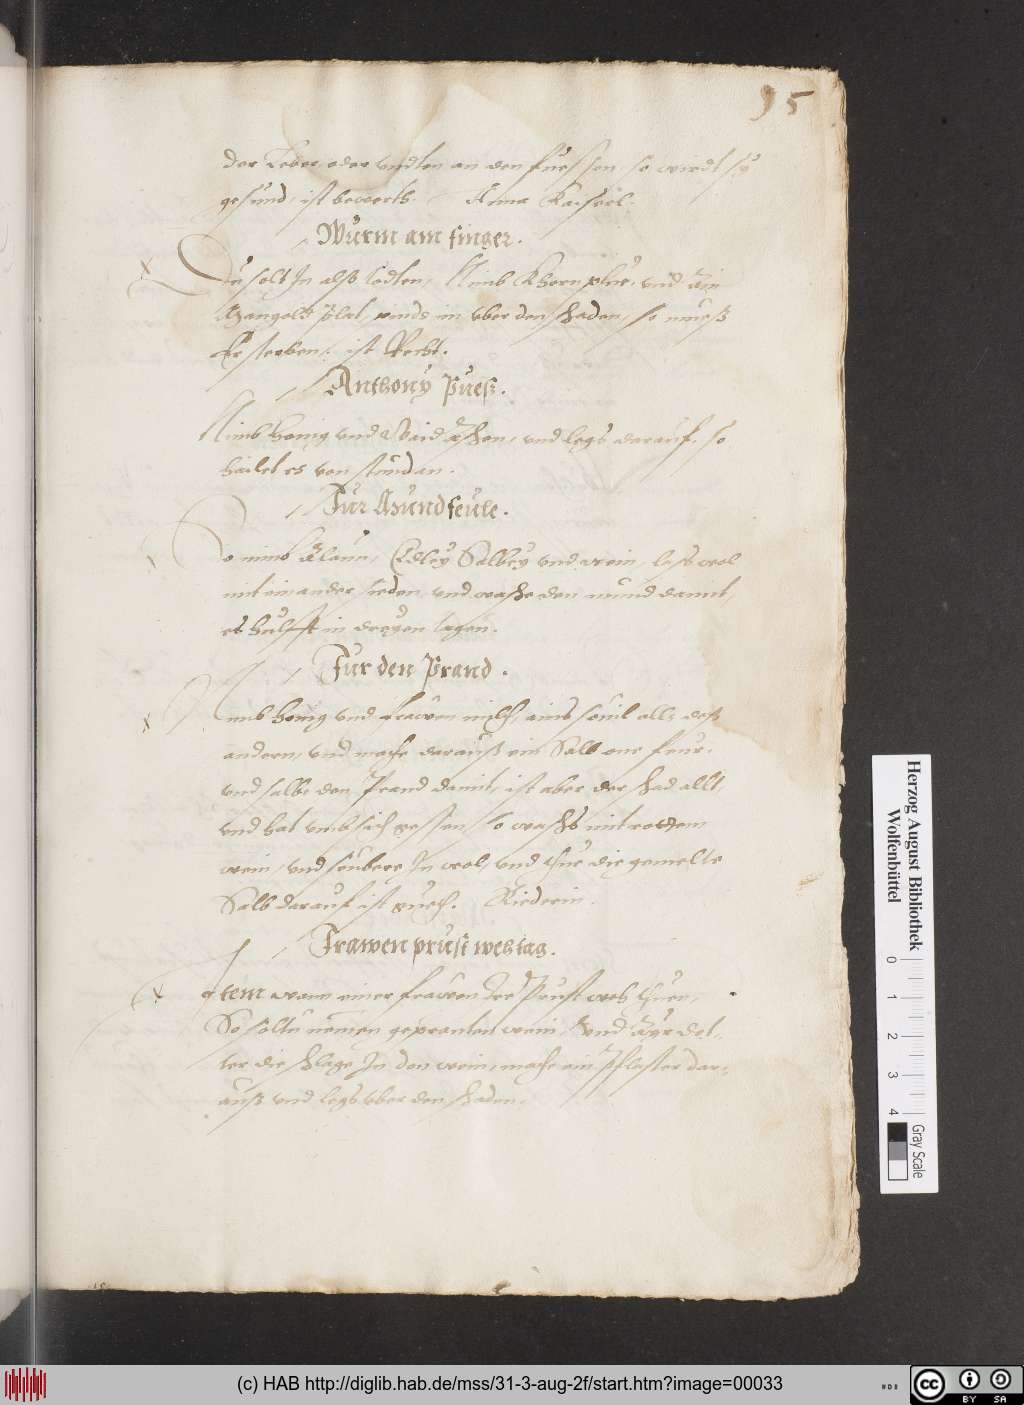 95
der Leber oder undten an den fuessen, so wirdt sy
gesund, ist bewerts. Anna Kaiserl.
Wurm am finger.
Du solt In alß todten, Nimb Khornplue, und ain
Mangolt plat, pinds im uber den schaden, so mueß
Er sterben, ist Recht.
Anthony Pueß.
Nimb honig und Waid äschen, und legs darauf, so
hailet es von stundan.
Fur Mundfeule.
So nimb Alaun, Edley Salbey und wein, laß wol
mit einander sieden, und wasche den mund damit,
es hulfft in dreyen tagen.
Fur den Prand.
Nimb honig und frawen milch, ains sovil allß deß
andern, und mache darauß ein Salb one feur,
und salbe den Prand damit, ist aber der schad allt,
und hat umb sich gessen, so waschs mit rottem
wein, und seubere In wol, und thue die gemelte
Salb darauf ist guett. Riederin.
Frawen prust wehtag.
Item wann einer frawen Ire Prust weh thuen,
So soltu nemen gepranten wein, und Ayr dot-
ter die schlage In den wein, mache ein pflaster dar-
auß und legs uber den schaden.
Herzog August Bibliothek
Wolfenbüttel
0 1 2 3 4
Gray Scale
(c) HAB http://diglib.hab.de/mss/31-3-aug-2f/start.htm?image=00033
cc BY SA